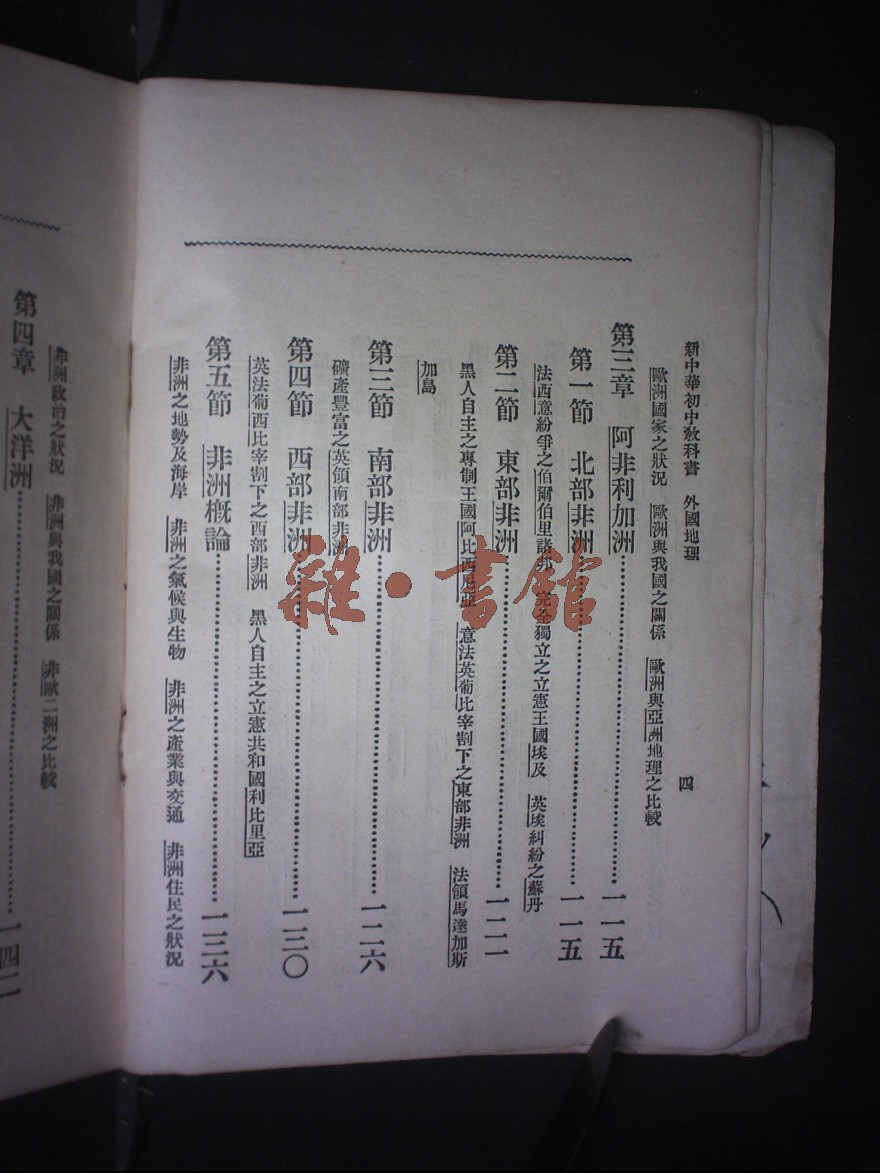 新中華初中教科書　外國地理　四
歐洲國家之狀況　歐洲與我國之關係　歐洲與亞洲地理之比較
第三章　阿非利加洲……一一五
第一節　北部非洲……一一五
法西意紛爭之伯爾伯里諸邦　完全獨立之立憲王國埃及　英埃糾紛之蘇丹
第二節　東部非洲……一二一
黑人自主之專制王國阿比西尼亞　意法英葡比宰割下之東部非洲　法領馬達加斯
加島
第三節　南部非洲……一二六
礦產豐富之英領南部非洲
第四節　西部非洲……一三〇
英法葡西比宰割下之西部非洲　黑人自主之立憲共和國利比里亞
第五節　非洲概論……一三六
非洲之地勢及海岸　非洲之氣候與生物　非洲之產業與交通　非洲住民之狀況
非洲政治之狀況　非洲與我國之關係　非歐二洲之比較
第四章　大洋洲……一四二
雜·書館